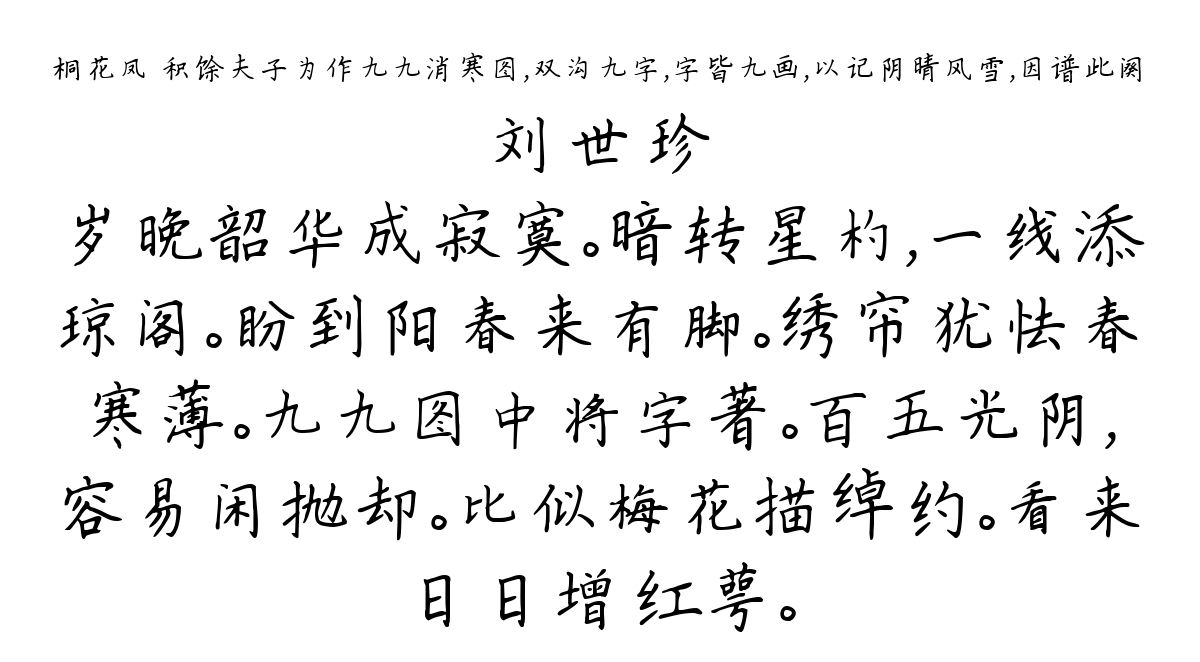 桐花凤 积馀夫子为作九九消寒图,双沟九字,字皆九画,以记阴晴风雪,因谱此阕
刘世珍
岁晚韶华成寂寞。暗转星杓,一线添
琼阁。盼到阳春来有脚。绣帘犹怯春
寒薄。九九图中将字著。百五光阴,
容易闲抛却。比似梅花描绰约。看来
日日增红萼。